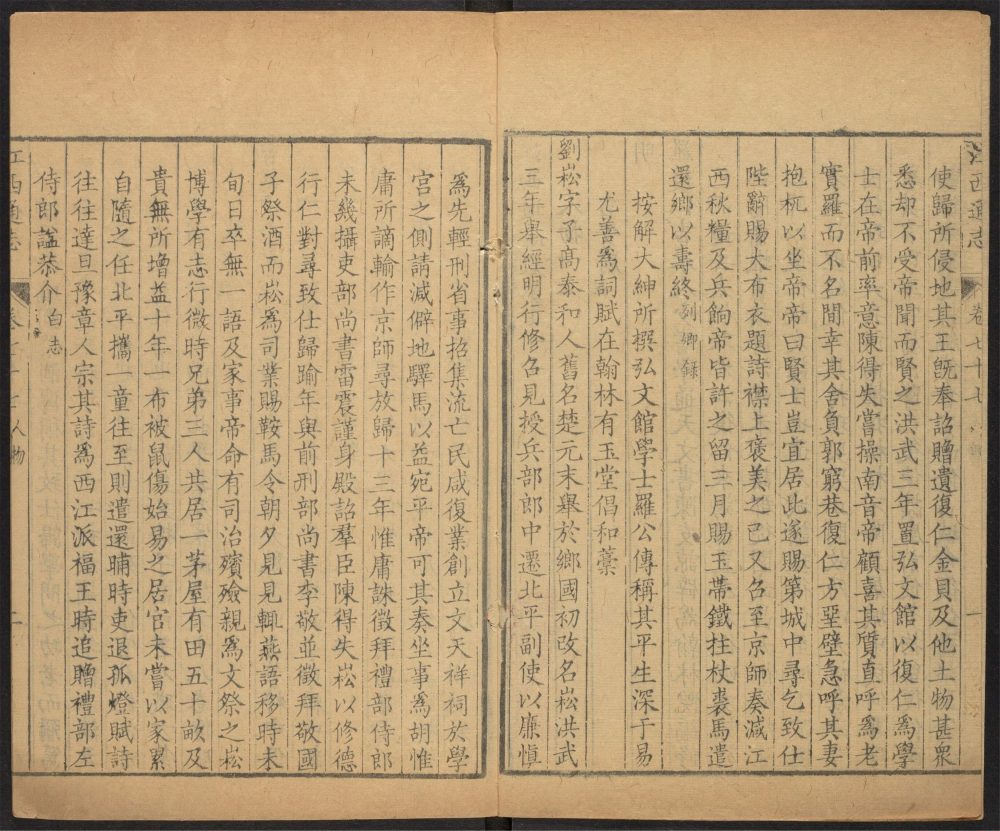 江西通志
卷七十七
使歸所侵地其王旣奉詔贈遺復仁金貝及他土物甚衆
悉却不受帝聞而賢之洪武三年置弘文館以復仁爲學
士在帝前率意陳得失嘗操南音帝顧喜其質直呼爲老
實羅而不名間幸其舍負郭窮巷復仁方堊壁急呼其妻
抱杌以坐帝帝曰賢士豈宜居此遂賜第城中尋乞致仕
陛辭賜大布衣題詩襟上褒美之已又召至京師奏減江
西秋糧及兵餉帝皆許之留三月賜玉帶鐵拄杖裘馬遣
還鄉以壽終列卿錄
按解大紳所撰弘文館學士羅公傳稱其平生深于易
尤善爲詞賦在翰林有玉堂倡和藁
劉崧字子高泰和人舊名楚元末舉於鄉國初改名崧洪武
三年舉經明行修召見授兵部郎中遷北平副使以廉愼
爲先輕刑省事招集流亡民咸復業創立文天祥祠於學
宮之側請減僻地驛馬以益宛平帝可其奏坐事爲胡惟
庸所謫輸作京師尋放歸十三年惟庸誅徵拜禮部侍郎
未幾攝吏部尚書雷震謹身殿詔羣臣陳得失崧以修德
行仁對尋致仕歸踰年與前刑部尚書李敬並徵拜敬國
子祭酒而崧爲司業賜鞍馬令朝夕見見輒燕語移時未
旬日卒無一語及家事帝命有司治殯殮親爲文祭之崧
博學有志行微時兄弟三人共居一茅屋有田五十畝及
貴無所增益十年一布被鼠傷始易之居官未嘗以家累
自隨之任北平攜一童往至則遣還晡時吏退孤燈賦詩
往往達旦豫章人宗其詩爲西江派福王時追贈禮部左
侍郎諡恭介白志
江西通志
人物